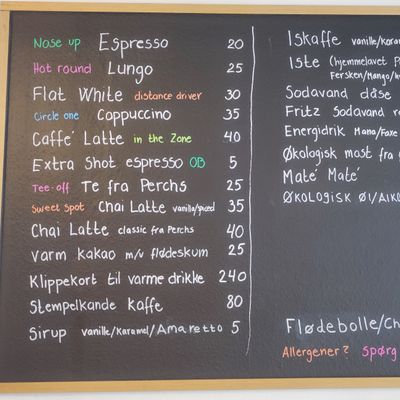 Nose up Espresso 20
Hot round Lungo 25
Flat White distance driver 30
Circle one Coppuccino 35
Caffe' Latte in the Zone 40
Extra Shot espresso OB 5
Tee-off Te fra Perchs 25
Sweet Spot Chai Latte vanille/spiced 35
Chai Latte classic fra Perchs 40
Varm kakao m/u flødeskum 25
Klippekort til varme drikke 240
Stempelkande Kaffe 80
Sirup vanille/Karamel/Amaretto 5
Iskaffe vanille/Karam
Iste (hjemmelavet P
Fersken/Mango/
Sodavand dåse
Fritz Sodavand
Energidrik Mana/Faxe
Økologisk most fra
Mate' Mate'
ØKOLOGISK ØL/ALK
Flødebolle/Ch
Allergener? Spørg